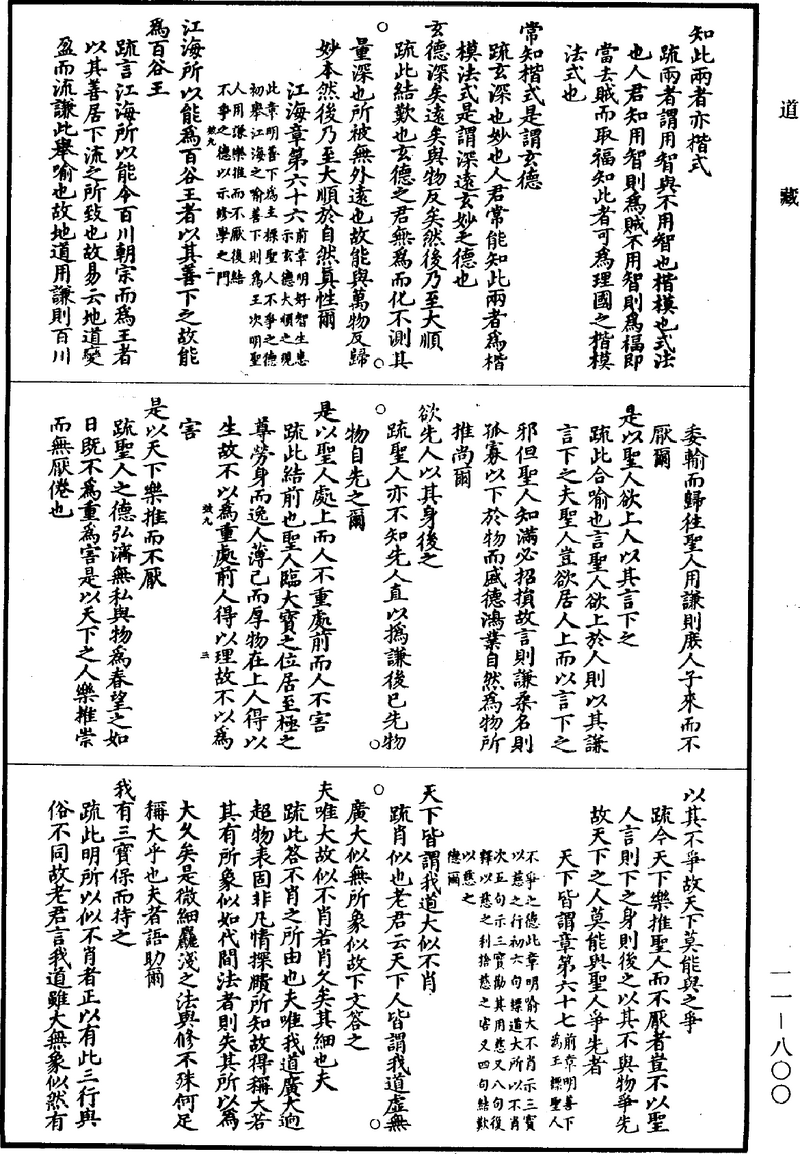 道藏
知此兩者亦楷式
疏兩者謂用智與不用智也楷模也式法
也人君知用智則為賊不用智則為福即
當去賊而取福知此者可為理國之楷模
法式也
常知楷式是謂玄德
疏玄深也妙也人君常能知此兩者為楷
模法式是謂深遠玄妙之德也
玄德深矣遠矣與物反矣然後乃至大順
疏此結歎也玄德之君無為而化不測其
量深也所被無外遠也故能與萬物反歸
妙本然後乃至大順於自然真性爾
江海章第六十六
前章明好智生患
示玄德大順之規
此章明善下為主標聖人不爭之德
初舉江海之喻善下則為王次明聖
人用謙樂推而不厭後結
不爭之德以示修學之門
江海所以能為百谷王者以其善下之故能
號九
二
為百谷王
疏言江海所以能令百川朝宗而為王者
以其善居下流之所致也故易云地道變
盈而流謙此舉喻也故地道用謙則百川
委輸而歸往聖人用謙則庶人子來而不
厭爾
是以聖人欲上人以其言下之
疏此合喻也言聖人欲上於人則以其謙
言下之夫聖人豈欲居人上而以言下之
邪但聖人知滿必招損故言則謙柔名則
孤寡以下於物而盛德鴻業自然為物所
推尚爾
欲先人以其身後之
疏聖人亦不知先人直以撝謙後已先物
物自先之爾
是以聖人處上而人不重處前而人不害
疏此結前也聖人臨大寶之位居至極之
尊勞身而逸人薄已而厚物在上人得以
生故不以為重處前人得以理故不以為
號九
三
害
是以天下樂推而不厭
疏聖人之德弘濟無私與物為春望之如
日既不為重為害是以天下之人樂推崇
而無厭倦也
以其不爭故天下莫能與之爭
疏今天下樂推聖人而不厭者豈不以聖
人言則下之身則後之以其不與物爭先
故天下之人莫能與聖人爭先者
天下皆謂章第六十七
前章明善下
為王標聖人
不爭之德此章明喻大不肖示三寶
以慈之行初六句標道大所以不肖
次五句示三寶勸其用慈又八句後
釋以慈之利捨慈之害又四句結歎
以慈之
德爾
天下皆謂我道大似不肖
疏肖似也老君云天下人皆謂我道虛無
廣大似無所象似故下文答之
夫唯大故似不肖若肖久矣其細也夫
疏此答不肖之所由也夫唯我道廣大迥
超物表固非凡情探賾所知故得稱大若
其有所象似如代間法者則失其所以為
大久矣是微細麤淺之法與修不殊何足
稱大乎也夫者語助爾
我有三寶保而持之
疏此明所以似不肖者正以有此三行與
俗不同故老君言我道雖大無象似然有
一一—八〇〇